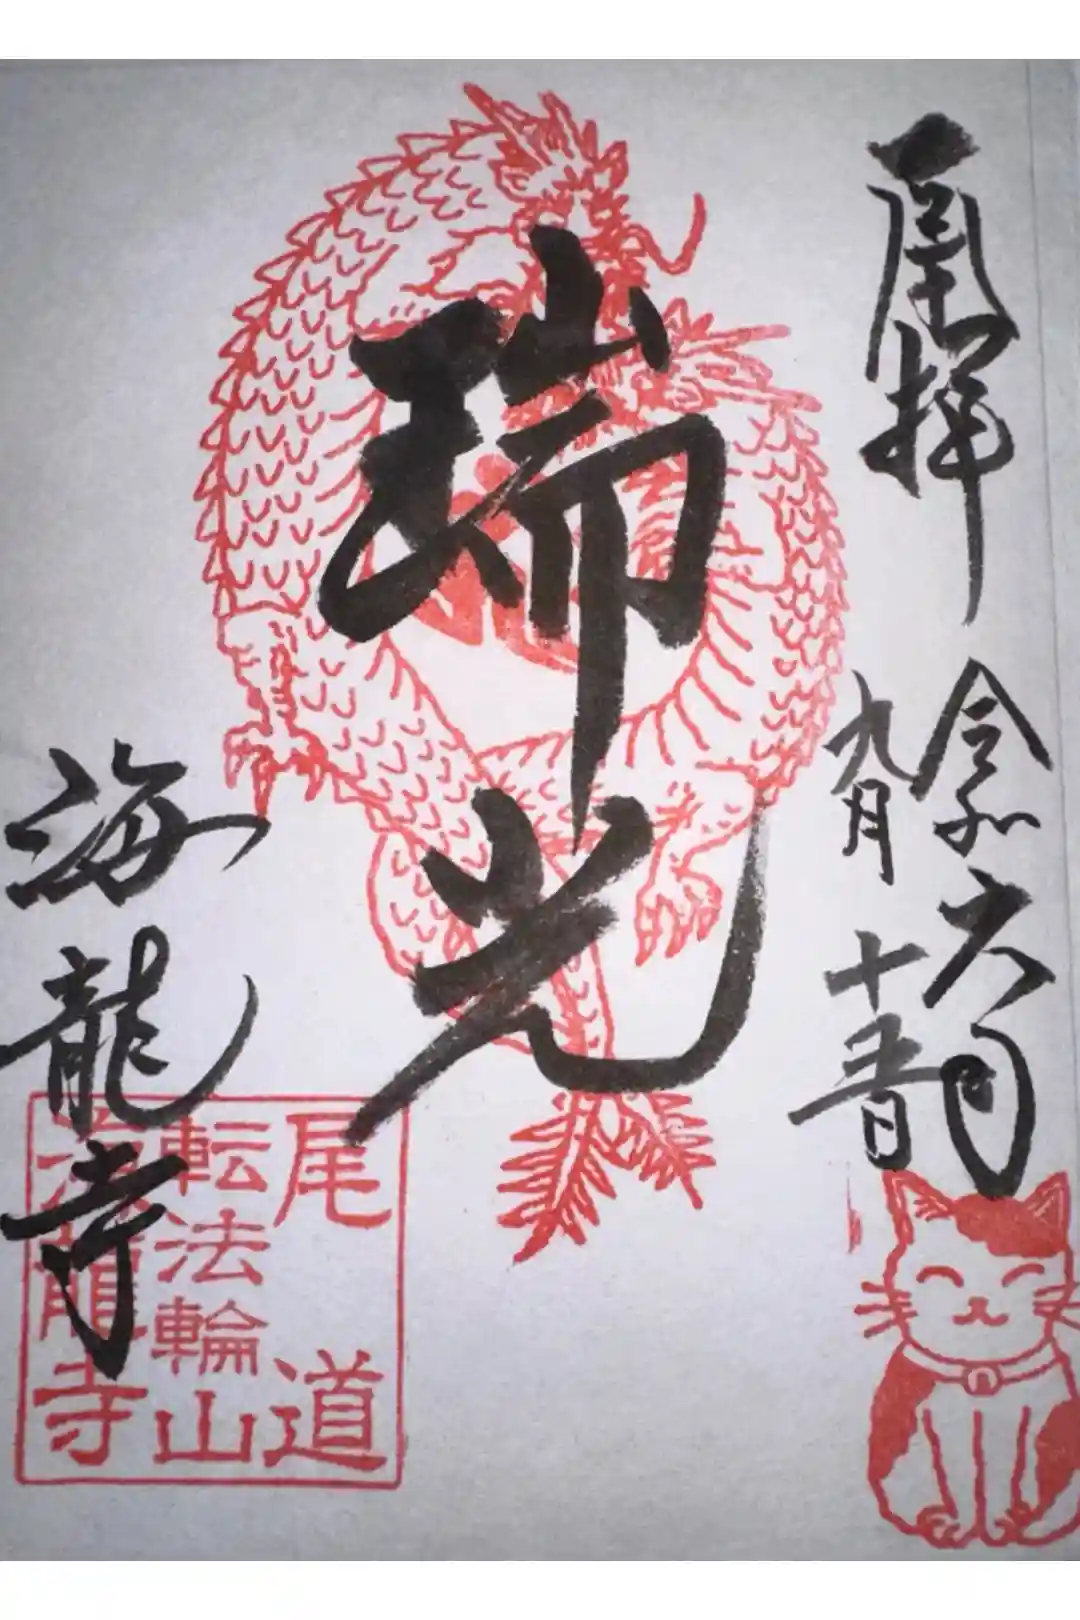 拝
令和六年
九月十五日
瑞光
海龍寺
尾道
転法輪山
海龍寺